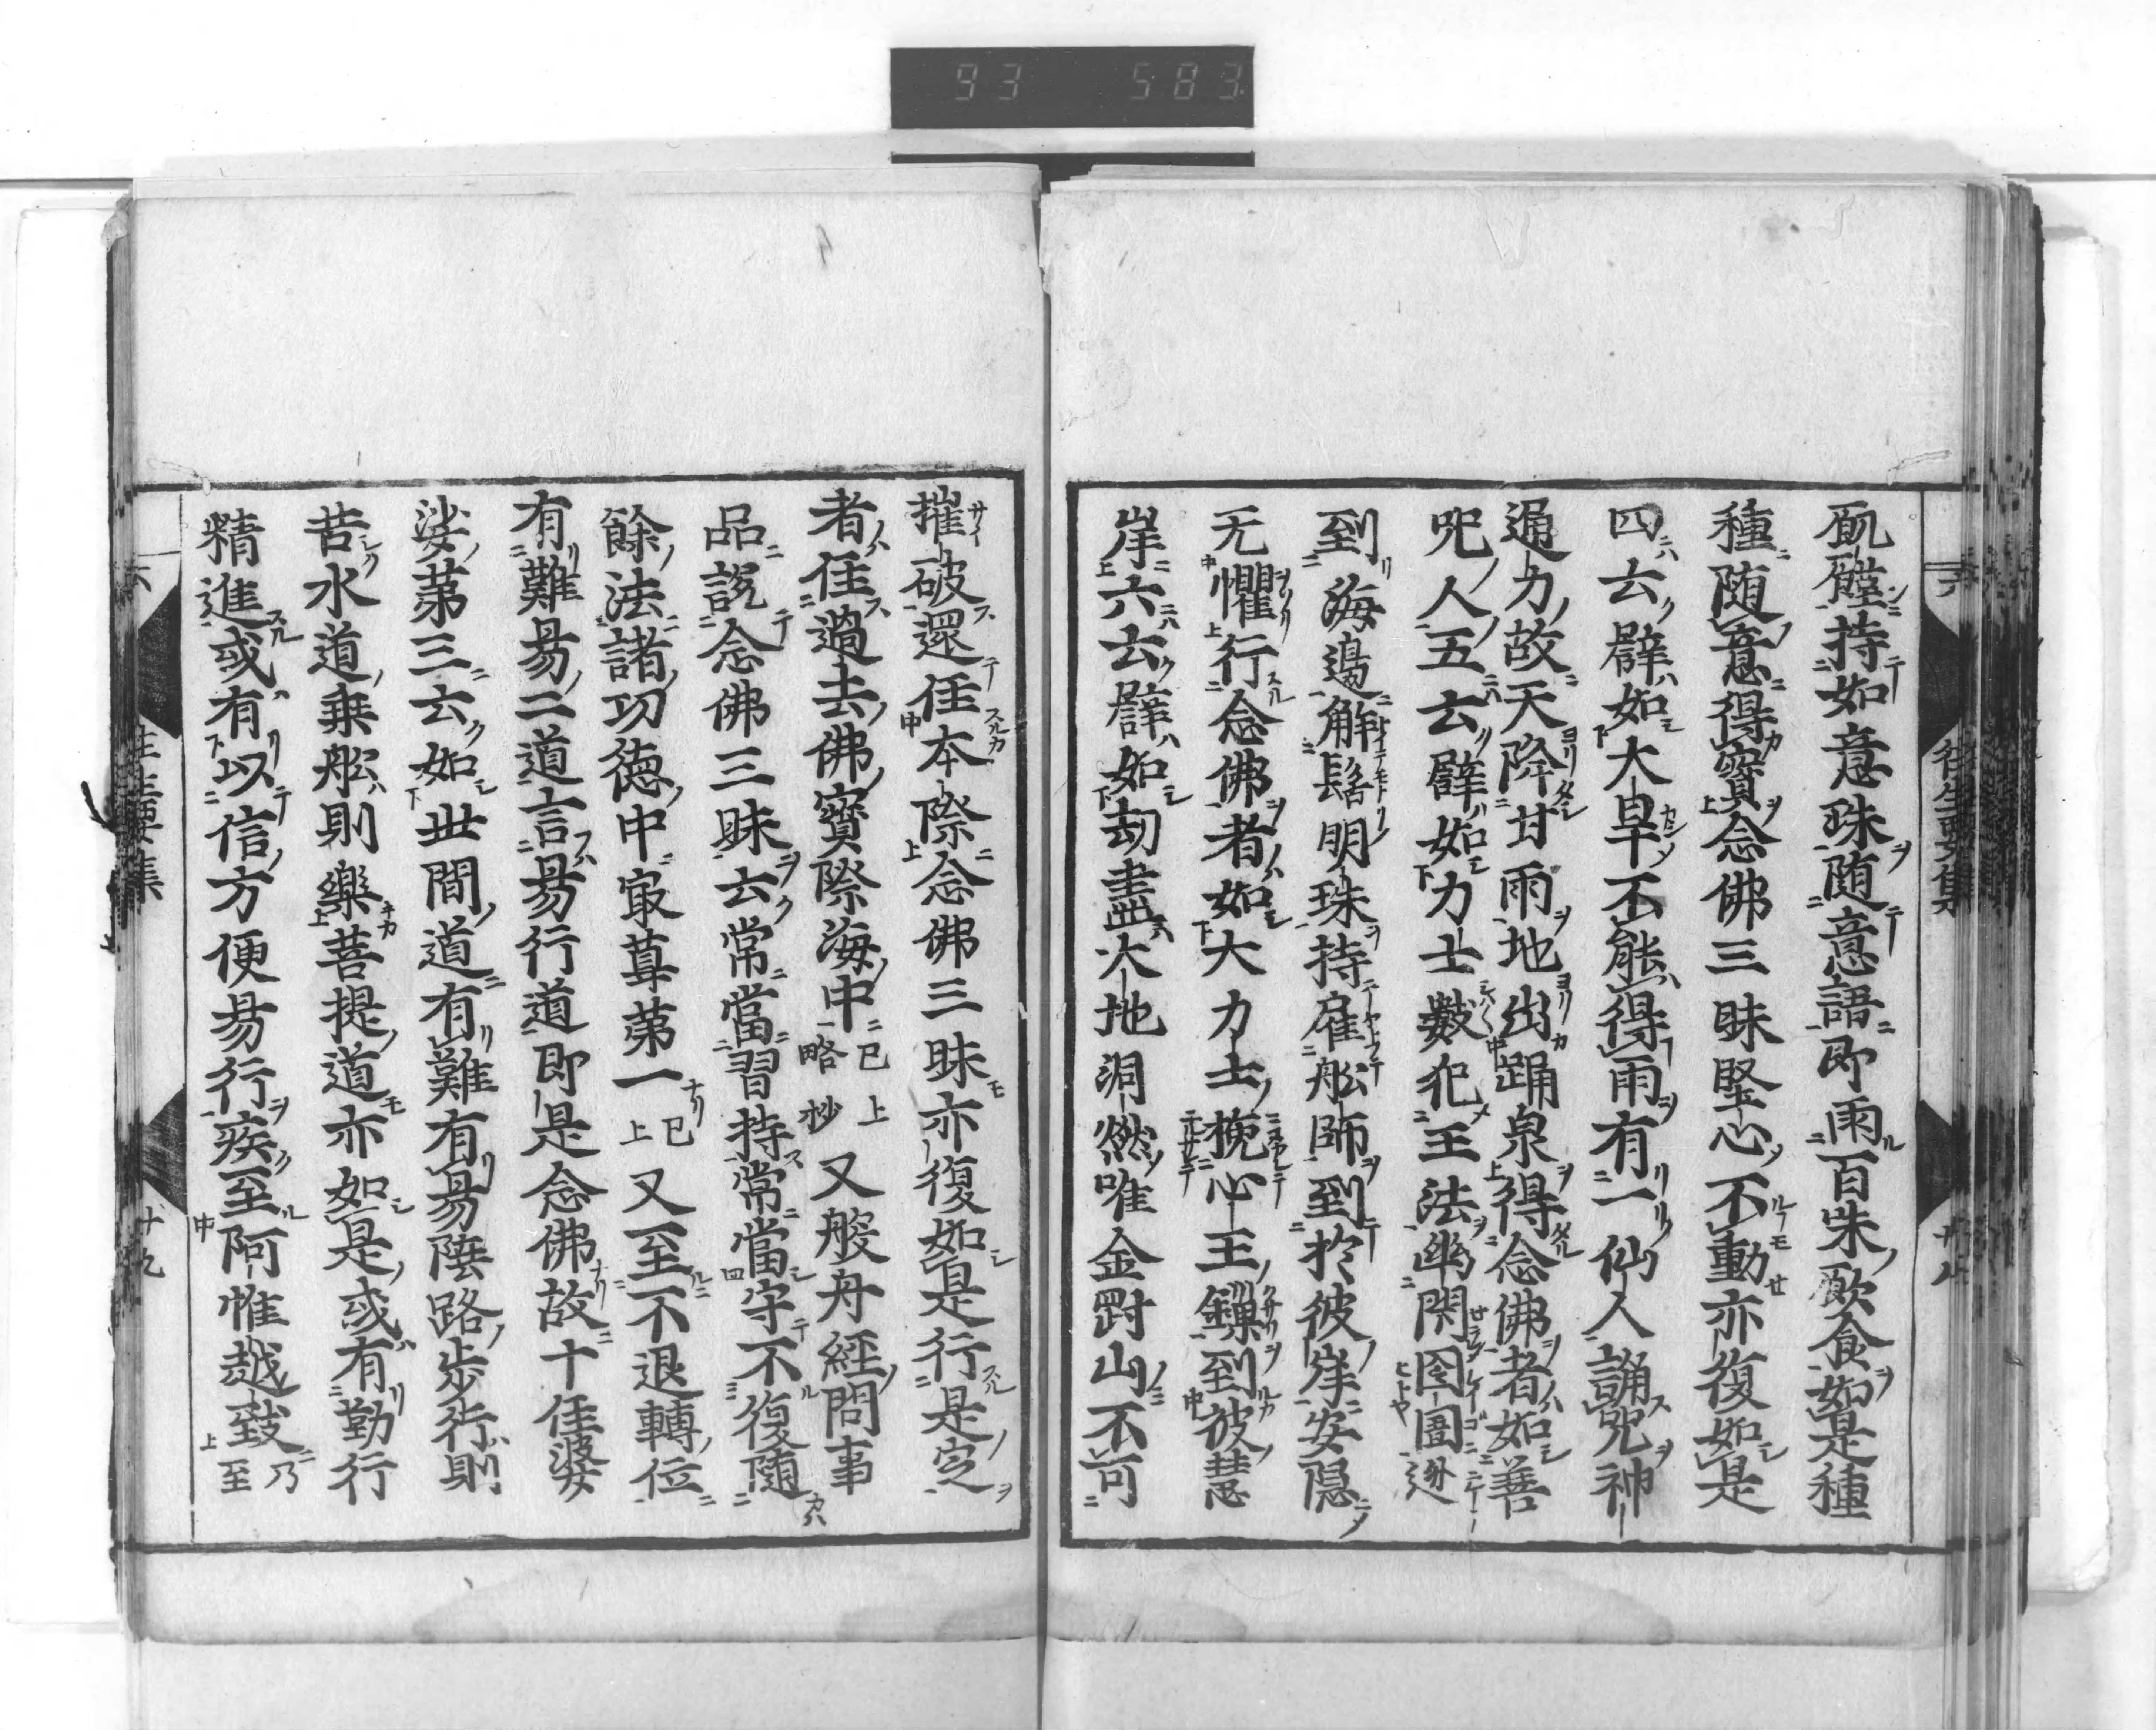 93 583
飢饉持如意珠随意語即雨百味飲食如是種
種随意得寳念佛三昧堅心不動亦復如是
四云譬如大旱不能得雨有一仙人誦呪神
通力故天降甘雨地出踊泉得念佛者如善
呪人五云譬如力士數犯王法幽閇囹圄逃
到海邊解髻明珠持雇舩師到於彼岸安隠
无懼行念佛者如大力士挽心王鏁到彼慧
岸六云譬如劫盡大地洞燃唯金剛山不可
摧破還住本際念佛三昧亦復如是行是定
者住過去佛寳際海中已上略抄又般舟經問事
品說念佛三昧云常當習持常當守不復随
餘法諸功徳中㝡尊第一已上又至不退轉位
有難易二道言易行道即是念佛故十住婆
娑第三云如世間道有難有易陸路步行則
苦水道乗舩則樂菩提道亦如是或有勤行
精進或有以信方便易行疾至阿惟越致乃至
往生要集
十九